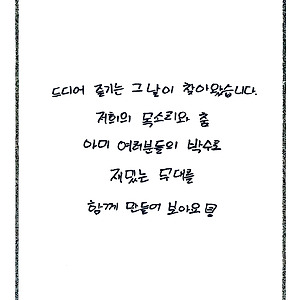 드디어 즐기는 그날이 찾아왔습니다.
저희의 목소리와 춤
아미 여러분들의 박수로
재밌는 무대를
함께 만들어 보아요